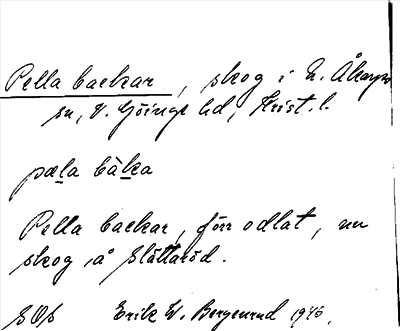 Pella backar, skog i N. Åkarps
sn, V. Göinge hd, Krist. l.
pæla bàka
Pella backar, förr odlat, nu
skog, å Slättaröd.
Erik W. Bergenrud 1945.